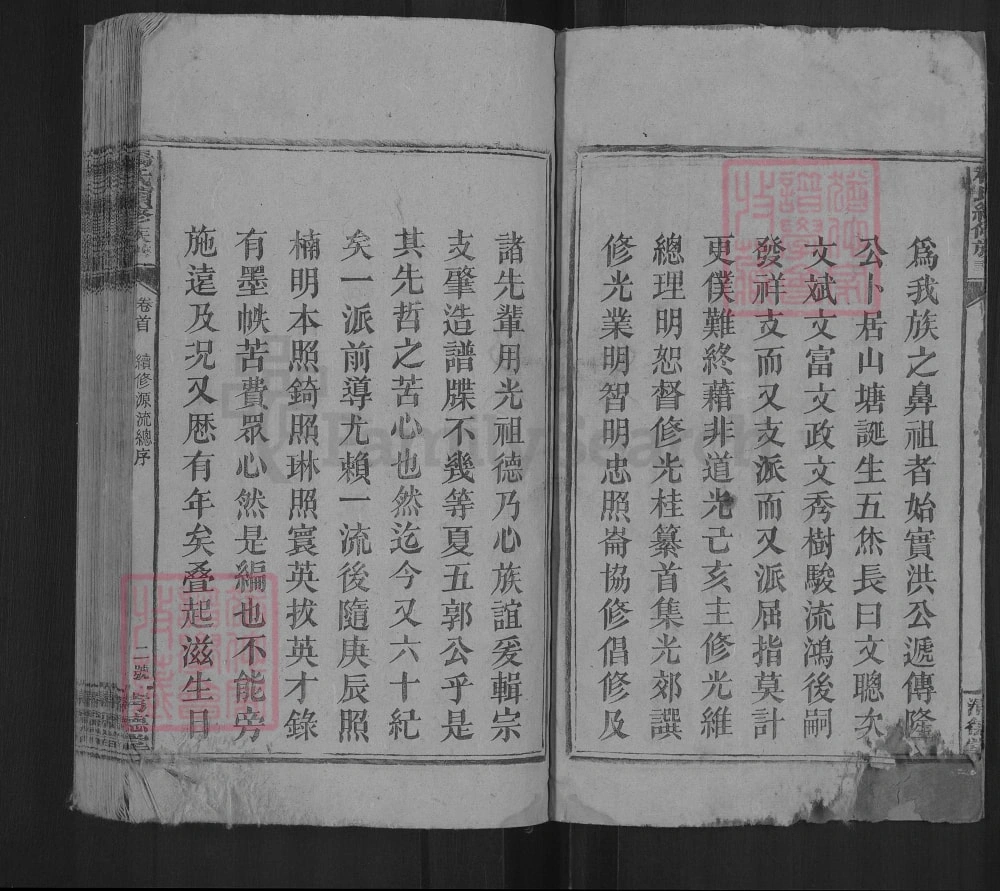 為我族之鼻祖者始實洪公遞傳隆
公卜居山塘誕生五烋長曰文聰次
文斌文富文政文秀樹駿流鴻後嗣
發祥支而又支派而又派屈指莫計
更僕難終藉非道光己亥主修光維
總理明恕督修光桂纂首集光郊譔
修光業明智明忠照崙協修倡修及
諸先輩用光祖德乃心族誼爰輯宗
支肇造譜牒不幾等夏五郭公乎是
其先哲之苦心也然迄今又六十紀
矣一派前導尤賴一流後隨庚辰照
楠明本照錡照琳照寰英拔英才錄
有墨帙苦費眾心然是編也不能旁
施遠及況又歷有年矣叠起滋生日
卷首
續修源流總序
二號
FamilySearch